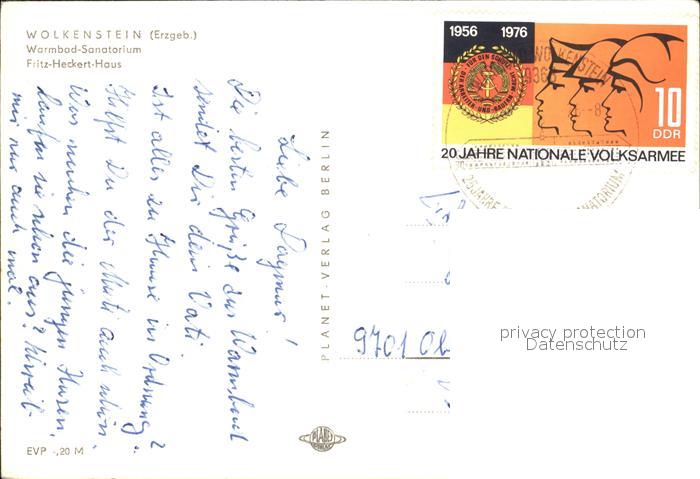 WOLKENSTEIN (Erzgeb.)
Warmbad-Sanatorium
Fritz-Heckert-Haus
Liebe Dagmar!
Die besten Grüße aus Warmbad
sendet Dir dein Vati.
Ist alles zu Hause in Ordnung?
Hilfst Du der Mutti auch schön.
Was machen die jungen Hasen,
laufen sie schon aus? Schreib
mir nur auch mal.
EVP -,20 M
PLANET-VERLAG BERLIN
PLANET
1956 1976
10
DDR
20 JAHRE NATIONALE VOLKSARMEE
WOLKENSTEIN
9366
9701 Ob
privacy protection
Datenschutz